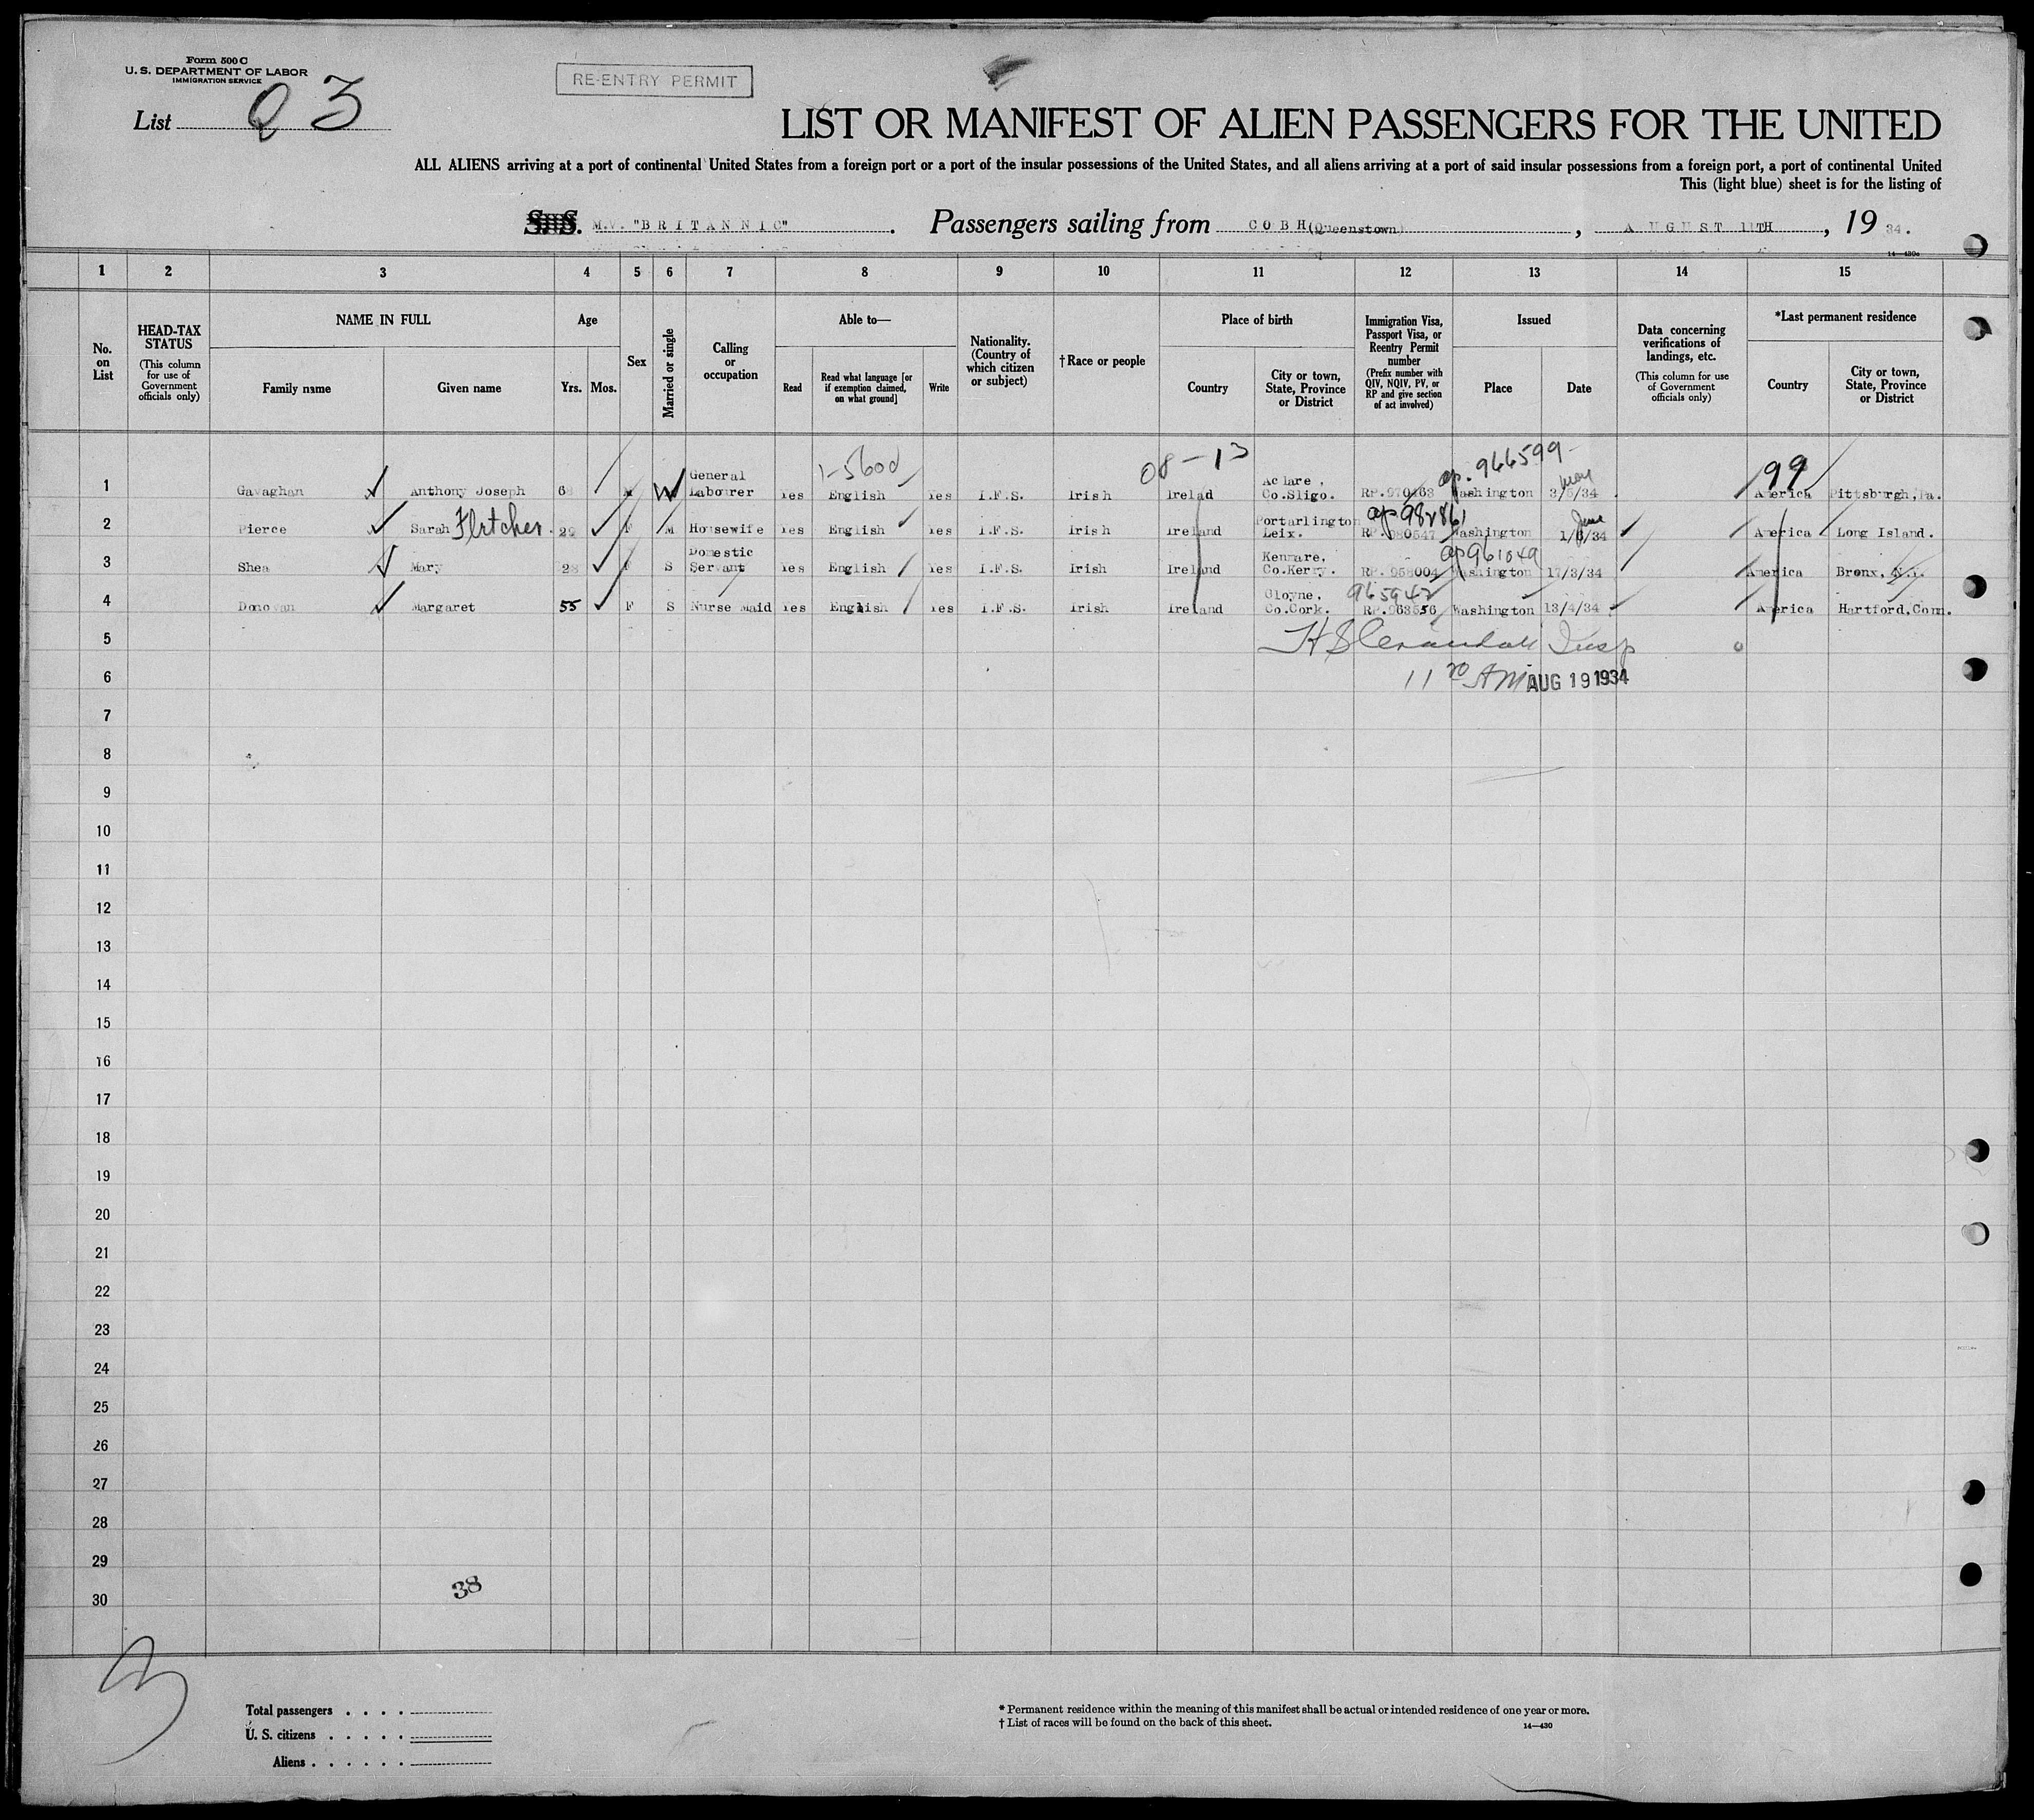 Form 500 C
U. S. DEPARTMENT OF LABOR
IMMIGRATION SERVICE
RE-ENTRY PERMIT
List Q 3
LIST OR MANIFEST OF ALIEN PASSENGERS FOR THE UNITED
ALL ALIENS arriving at a port of continental United States from a foreign port or a port of the insular possessions of the United States, and all aliens arriving at a port of said insular possessions from a foreign port, a port of continental United
This (light blue) sheet is for the listing of
M.V. "BRITANNIC" . Passengers sailing from COBH(Queenstown) , AUGUST 11TH , 19 34.
14—430a
1 2 3 4 5 6 7 8 9 10 11 12 13 14 15
No. on List
HEAD-TAX STATUS (This column for use of Government officials only)
NAME IN FULL
Family name Given name
Age
Yrs. Mos.
Sex
Married or single
Calling or occupation
Able to—
Read Read what language [or if exemption claimed, on what ground] Write
Nationality. (Country of which citizen or subject)
†Race or people
Place of birth
Country City or town, State, Province or District
Immigration Visa, Passport Visa, or Reentry Permit number (Prefix number with QIV, NQIV, PV, or RP and give section of act involved)
Issued
Place Date
Data concerning verifications of landings, etc. (This column for use of Government officials only)
*Last permanent residence
Country City or town, State, Province or District
08-13 ap. 966599 May 99
1 Gavaghan Anthony Joseph W General Labourer Yes English Yes I.F.S. Irish Irelad Aclare, Co.Sligo. RP.970463 Washington 3/5/34 America Pittsburgh, Pa.
ap 982861 June
2 Pierce Sarah Fletcher. 29 F M Housewife Yes English Yes I.F.S. Irish Ireland Portarlington Leix. RP.980547 Washington 1/6/34 America Long Island.
ap 961049
3 Shea Mary 28 F S Domestic Servant Yes English Yes I.F.S. Irish Ireland Kenmare, Co.Kerry. RP.958004 Washington 17/3/34 America Bronx, N.Y.
965942
4 Donovan Margaret 55 F S Nurse Maid Yes English Yes I.F.S. Irish Ireland Cloyne, Co.Cork. RP.963556 Washington 13/4/34 America Hartford, Conn.
5 Insp
6 11 20 AM AUG 19 1934
7
8
9
10
11
12
13
14
15
16
17
18
19
20
21
22
23
24
25
26
27
28
29
30
38
3
Total passengers
U. S. citizens
Aliens
* Permanent residence within the meaning of this manifest shall be actual or intended residence of one year or more.
† List of races will be found on the back of this sheet.
14—430